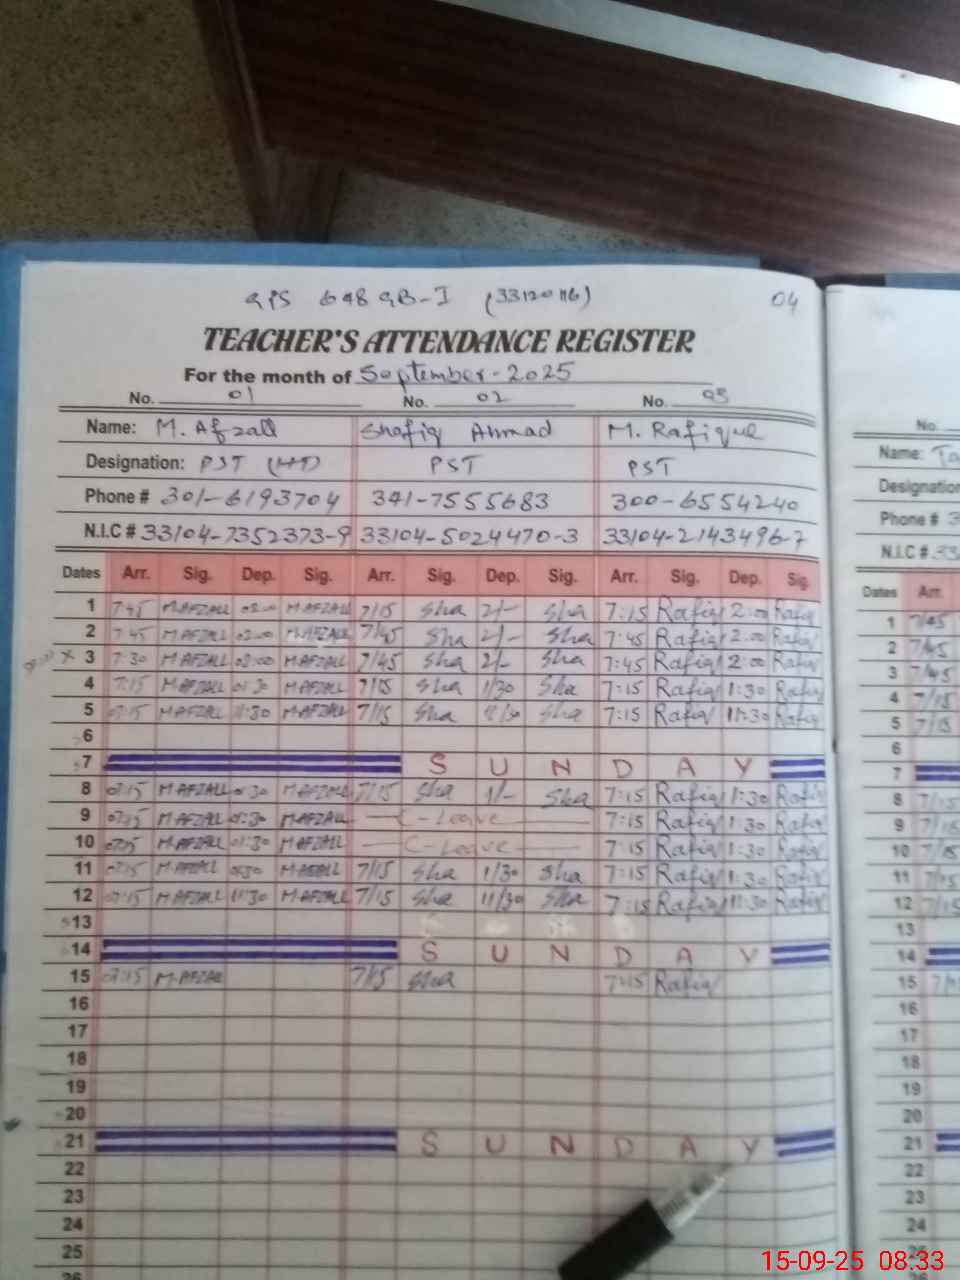 GPS 648 GB-I (33120116) 04
TEACHER'S ATTENDANCE REGISTER
For the month of September-2025
No. 01 No. 02 No. 03
Name: M. Afzall Shafiq Ahmad M. Rafique
Designation: PST (HT) PST PST
Phone # 301-6193704 341-7555683 300-6554240
N.I.C # 33104-7352373-9 33104-5024470-3 33104-2143496-7
Dates Arr. Sig. Dep. Sig. Arr. Sig. Dep. Sig. Arr. Sig. Dep. Sig.
1 7:45 M.AFZALL 02:00 M.AFZALL 7/15 Sha 2/- Sha 7:15 Rafiq 2:00 Rafiq
2 7:45 M.AFZALL 02:00 M.AFZALL 7/45 Sha 2/- Sha 7:45 Rafiq 2:00 Rafiq
3 7:30 M.AFZALL 02:00 M.AFZALL 7/45 Sha 2/- Sha 7:45 Rafiq 2:00 Rafiq
4 7:15 M.AFZALL 01:30 M.AFZALL 7/15 Sha 1/30 Sha 7:15 Rafiq 1:30 Rafiq
5 07:15 M.AFZALL 11:30 M.AFZALL 7/15 Sha 11/30 Sha 7:15 Rafiq 11:30 Rafiq
6
7 S U N D A Y
8 07:15 M.AFZALL 01:30 M.AFZALL 7/15 Sha 1/- Sha 7:15 Rafiq 1:30 Rafiq
9 07:15 M.AFZALL 01:30 M.AFZALL C-Leave 7:15 Rafiq 1:30 Rafiq
10 07:15 M.AFZALL 01:30 M.AFZALL C-Leave 7:15 Rafiq 1:30 Rafiq
11 07:15 M.AFZALL 01:30 M.AFZALL 7/15 Sha 1/30 Sha 7:15 Rafiq 1:30 Rafiq
12 07:15 M.AFZALL 11:30 M.AFZALL 7/15 Sha 11/30 Sha 7:15 Rafiq 11:30 Rafiq
13
14 S U N D A Y
15 07:15 M.AFZALL 7/15 Sha 7:15 Rafiq
16
17
18
19
20
21 S U N D A Y
22
23
24
25
26
No.
Name:
Designation
Phone # 3
N.I.C # 33
Dates Arr.
1 7/45
2 7/45
3 7/45
4 7/15
5 7/15
6
7
8 7/15
9 7/15
10 7/15
11 7/15
12 7/15
13
14
15
16
17
18
19
20
21
22
23
24
25
15-09-25 08:33